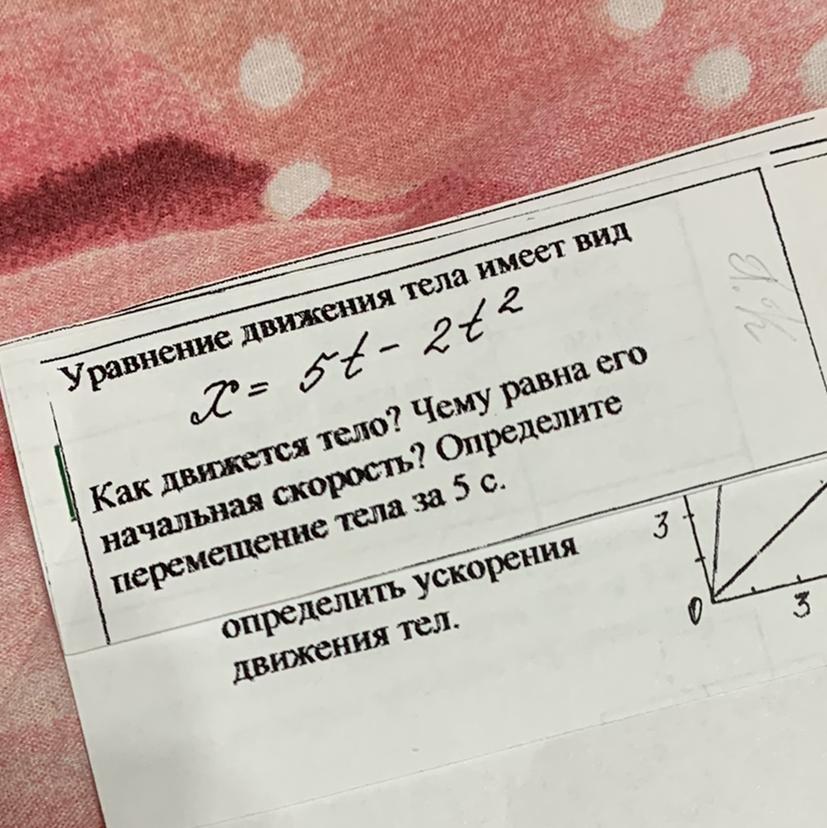 Уравнение движения тела имеет вид
x = 5t - 2t²
Как движется тело? Чему равна его
начальная скорость? Определите
перемещение тела за 5 с.
определить ускорения
движения тел.
3
0
3